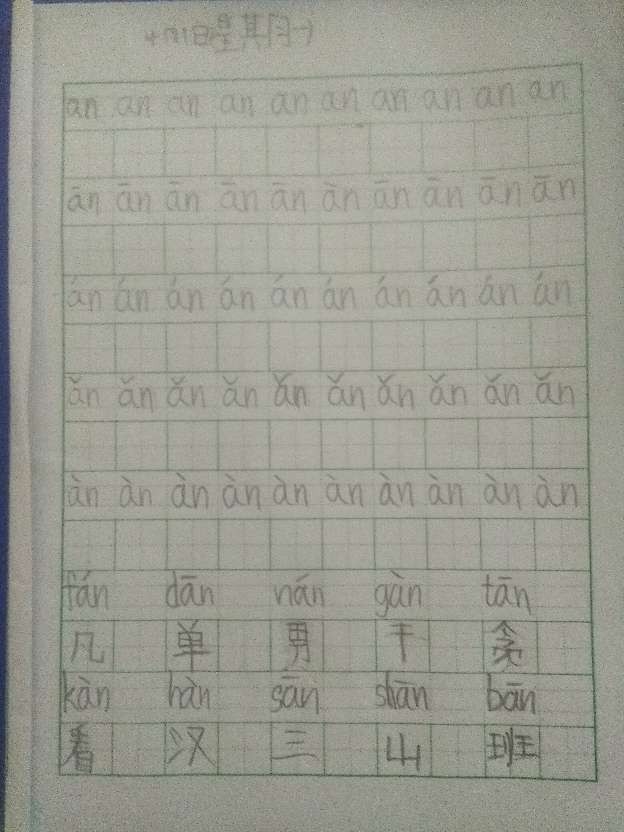 an an an an an an an an an an
ān ān ān ān ān àn ān ān ān ān
án án án án án án án án án án
ǎn ǎn ǎn ǎn ǎn ǎn ǎn ǎn ǎn ǎn
àn àn àn àn àn àn àn àn àn àn
fán dān nán gàn tān
凡 单 男 干 贪
kàn hàn sān shān bān
看 汉 三 山 班